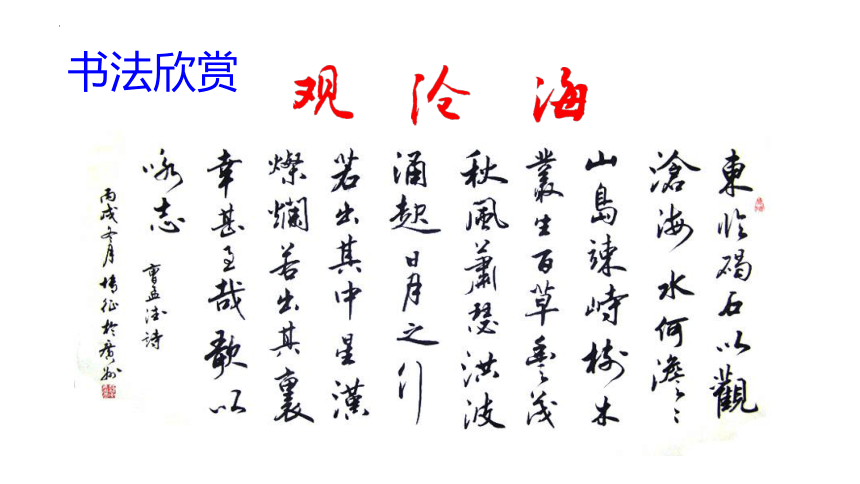 书法欣赏
观 沧 海
東临碣石以觀
滄海水何澹々
山島竦峙樹木
叢生百草豐茂
秋風蕭瑟洪波
涌起日月之行
若出其中星漢
燦爛若出其裏
幸甚至哉歌以
咏志
曹孟德詩
丙戌冬月 征於廣州